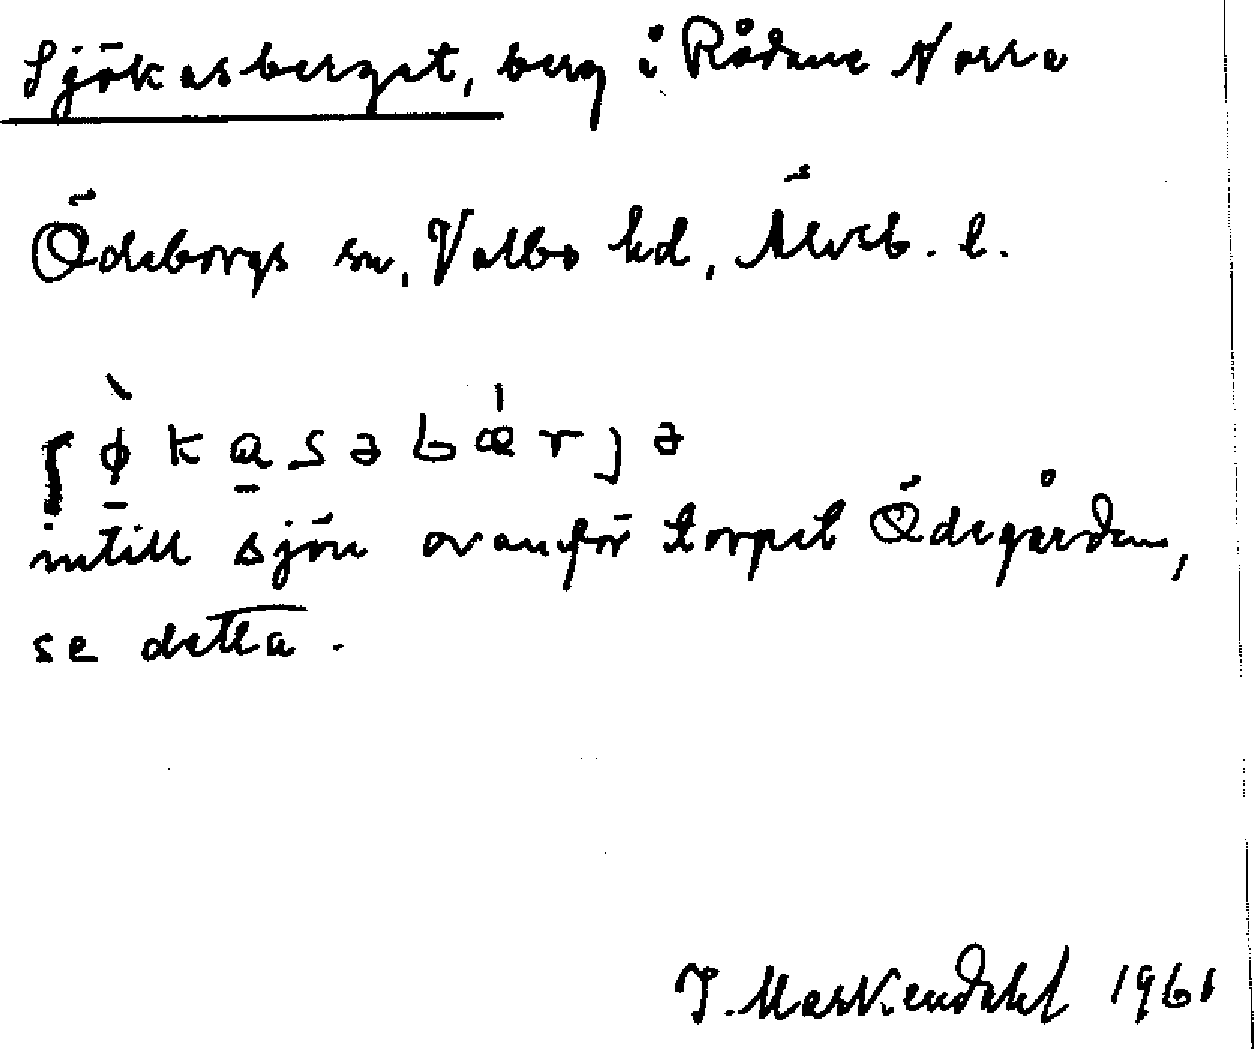 Sjökasberget, berg i Rådane Norra
Ödeborgs sn, Valbo hd, Älvsb. l.
ʃø̀kasəbǽrjə
intill sjön ovanför torpet Ödegården,
se detta.
J. Maskendahl 1961